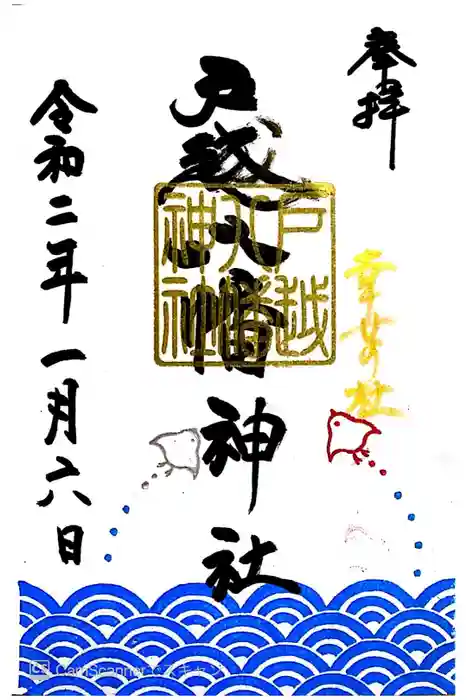 奉拝
幸分社
戸越八幡神社
戸越
八幡
神社
令和二年一月六日
CamScannerでスキャン